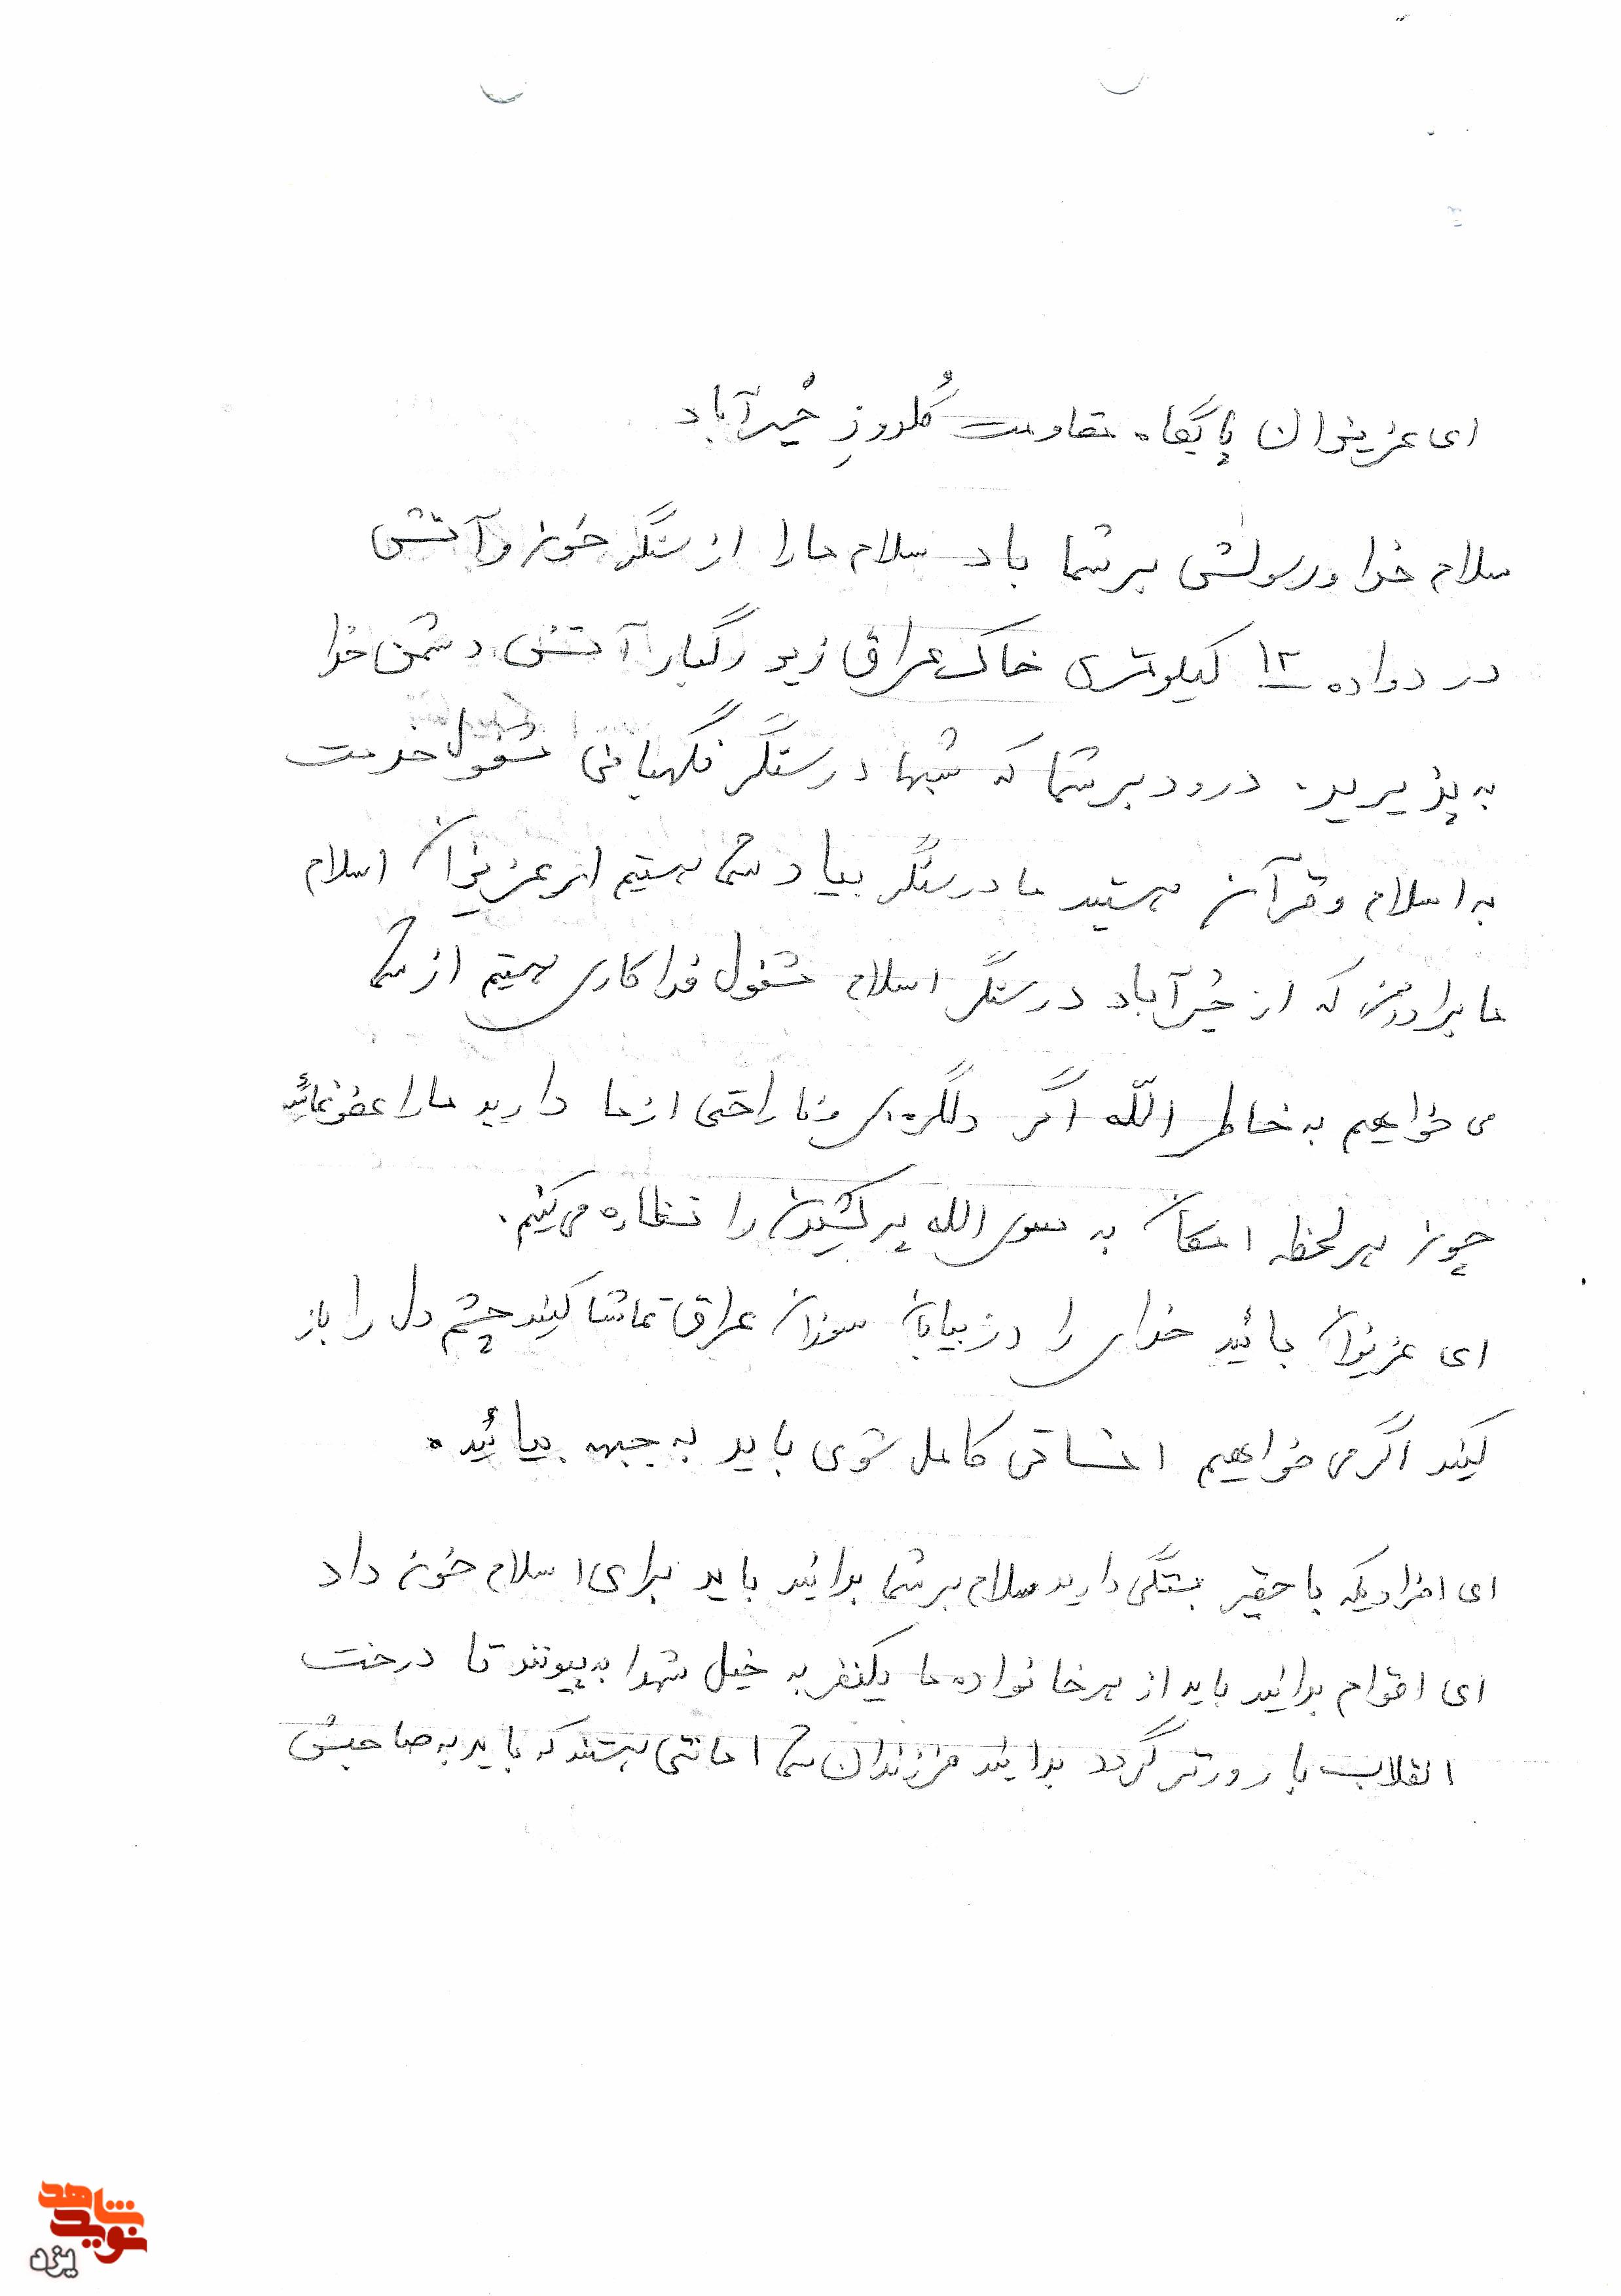 ای عزیزان پایگاه مقاومت گلدوز خیرآباد
سلام خدا و رسولش بر شما باد سلام ما را از سنگر خون و آتش
در دواده ۱۲ کیلومتری خاک عراق زیر رگبار آتش دشمن خدا
به پذیرید. درود بر شما که شبها در سنگر نگهبانی مشغول خدمت
به اسلام و قرآن هستید ما در سنگر بیاد شما هستیم ای عزیزان اسلام
ما برادران که از خیرآباد در سنگر اسلام مشغول فداکاری هستیم از شما
می خواهیم به خاطر الله اگر دلگیری و ناراحتی از ما دارید ما را عفو نمائید
چون هر لحظه امکان به سوی الله پر کشیدن را نظاره می کنیم.
ای عزیزان بیائید خدای را در بیابان سوزان عراق تماشا کنید چشم دل را باز
کنید اگر می خواهیم انسانی کامل شوی باید به جبهه بیائید.
ای افرادیکه با حقیر بستگی دارید سلام بر شما بدانید باید برای اسلام خون داد
ای اقوام بدانید باید از هر خانواده ما یکنفر به خیل شهدا به پیوندد تا درخت
انقلاب بارورتر گردد بدانید فرزندان شما امانتی هستند که باید به صاحبش
نوید شاهد
یزد